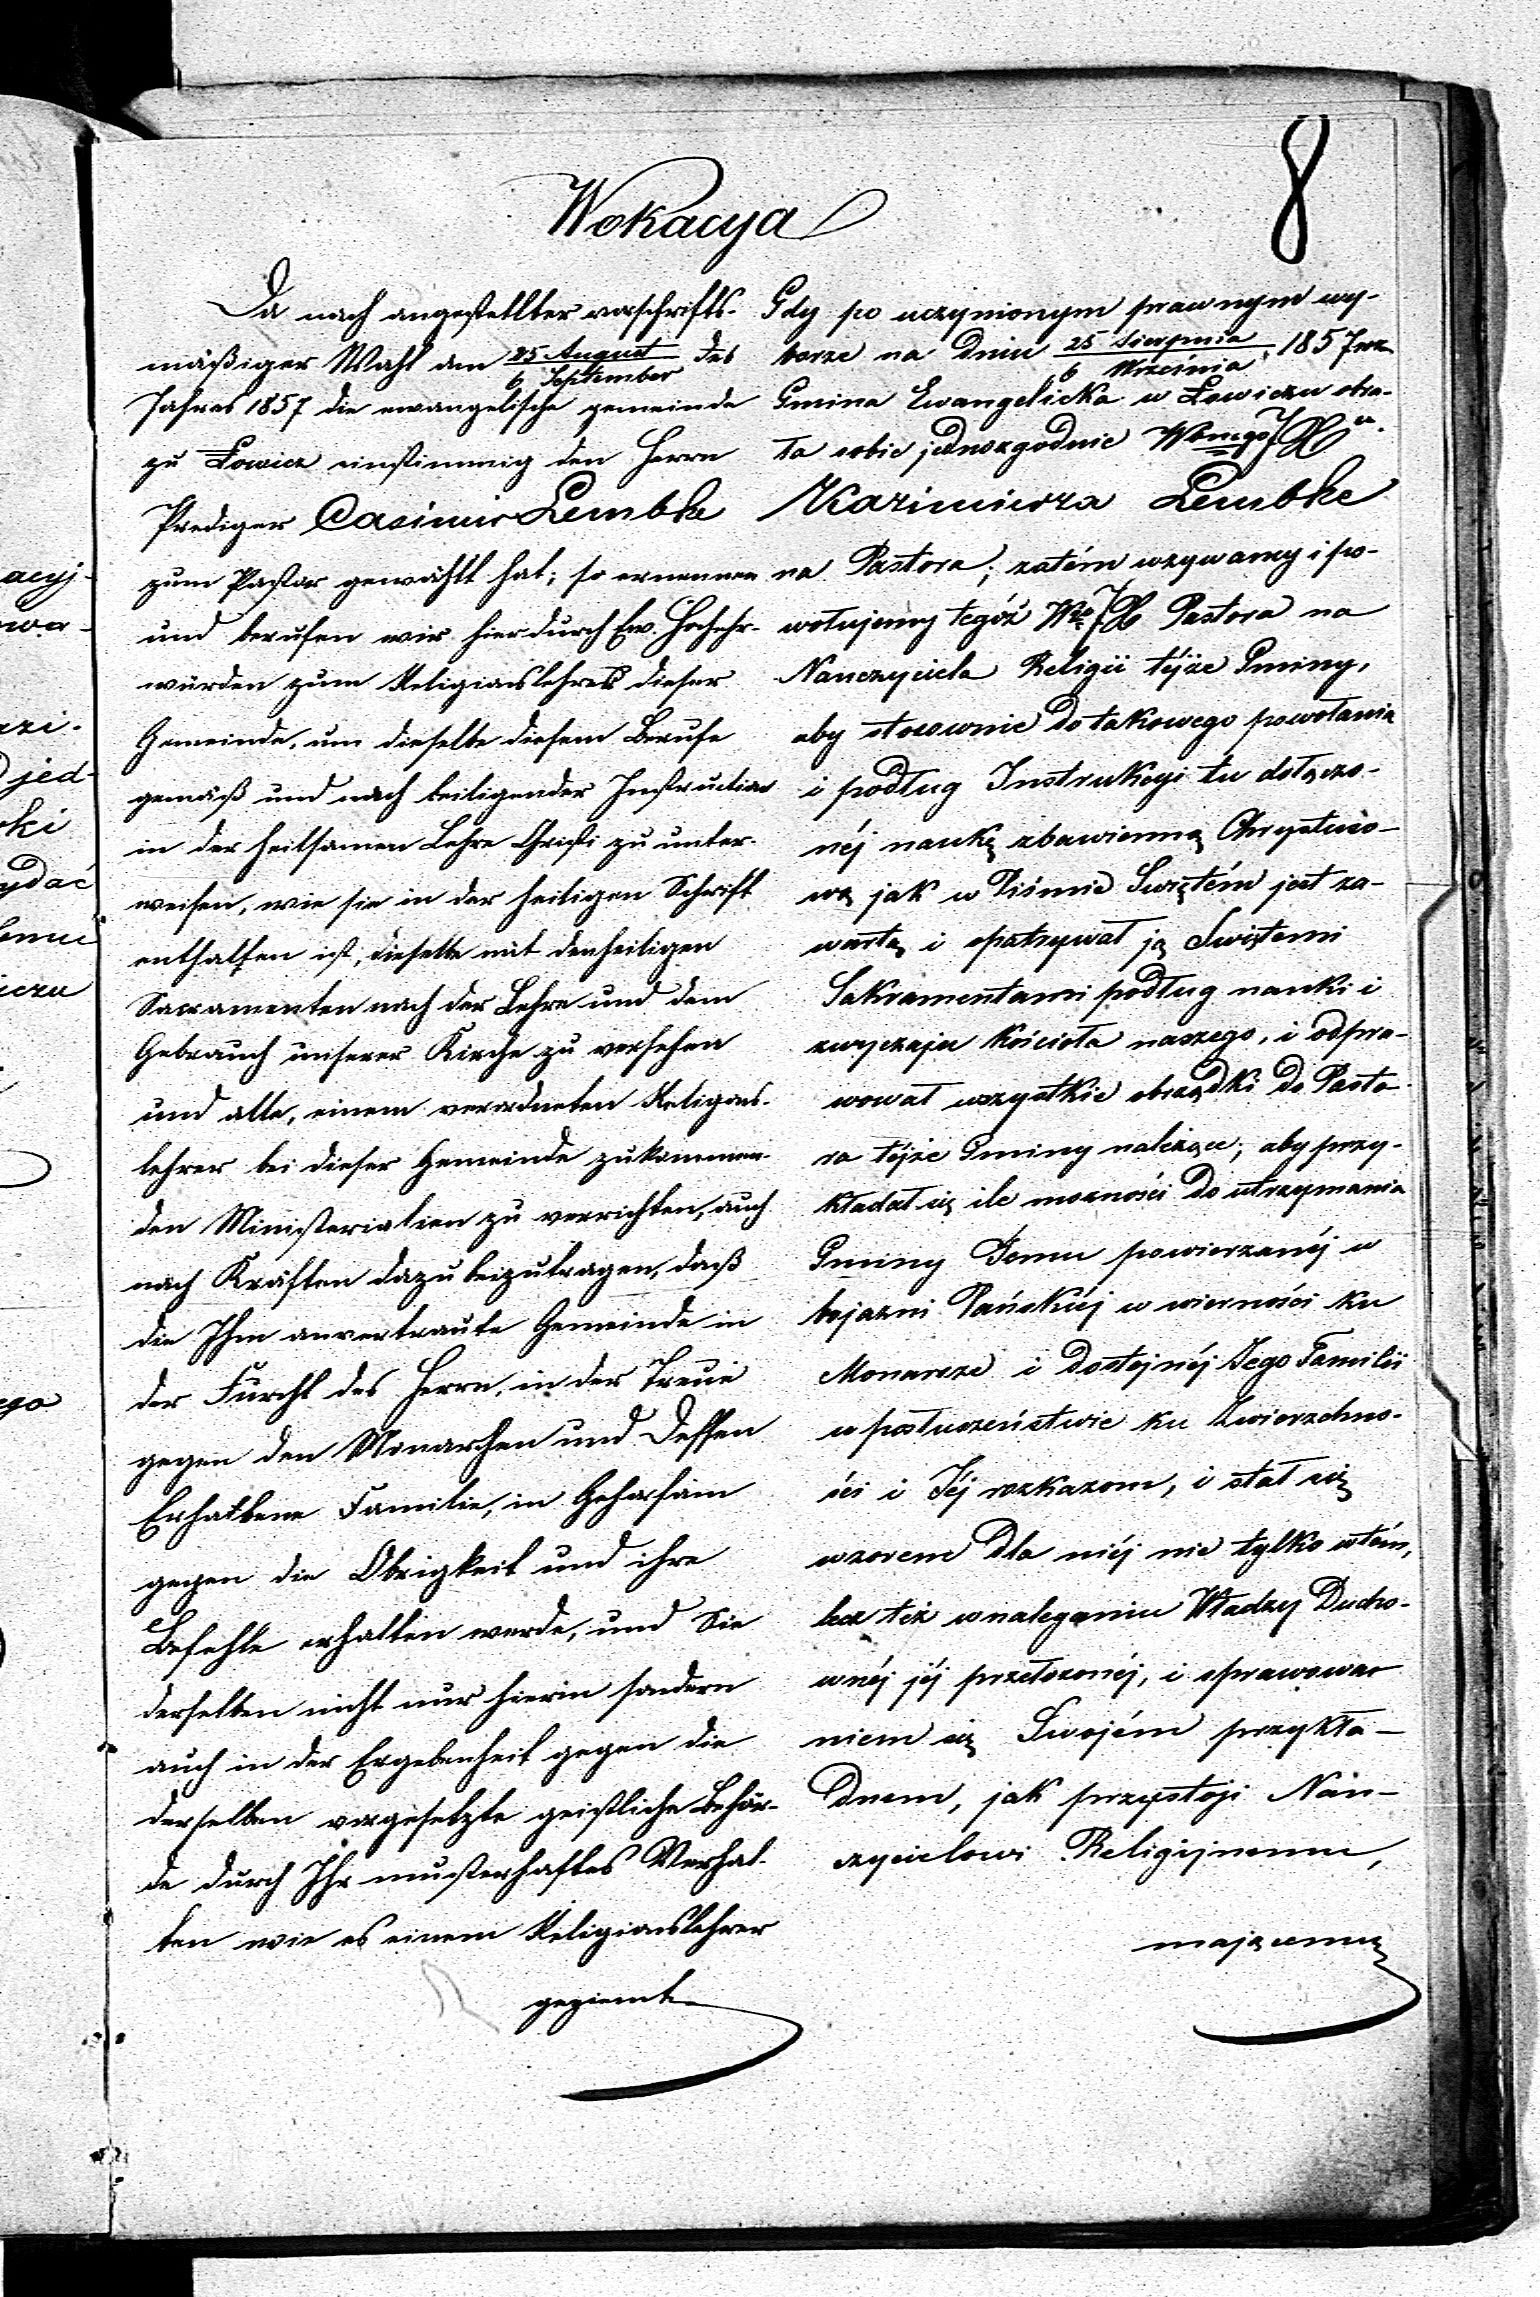 8
Wokacya
Da nach angestellter vorschrifts-
mäßiger Wahl am 25 August / 6 September des
Jahres 1857 die evangelische gemeinde
zu Łowicz einstimmig den Herrn
Prediger Casimir Lembke
zum Pastor gewählt hat; so ernennen
und berufen wir hierdurch Ew. Hochehr-
würden zum Religionslehrer dieser
Gemeinde, um dieselbe diesem Berufe
gemäß und nach beiligender Instruction
in der heilsamen Lehre Christi zu unter-
weisen, wie sie in der heiligen Schrift
enthalten ist, dieselbe mit den heiligen
Sacramenten nach der Lehre und dem
Gebrauch unserer Kirche zu versehen
und alle, einem verordneten Religons-
lehrer bei dieser Gemeinde zukommen-
den Ministerialien zu verrichten, auch
nach Kräften dazu beizutragen, daß
die Ihm anvertraute Gemeinde in
der Furcht des Herrn, in der Treue
gegen den Monarchen und Dessen
Erhabene Familie, in Gehorsam
gegen die Obrigkeit und ihre
Befehle erhalten werde, und Sie
derselben nicht nur hierin sondern
auch in der Ergebenheit gegen die
derselben vorgesetzte geistliche Behör-
de durch Ihr musterhaftes Verhal-
ten wie es einem Religionslehrer
geziemt
Gdy po uczynionym prawnym wy-
borze na dniu 25 Sierpnia / 6 Września 1857 rz
Gmina Ewangelicka w Łowiczu obra-
ła sobie jednozgodnie Wbnego JX
Kazimierza Lembke
na Pastora; zatém wzywamy i po-
wołujemy tegóż Wgo JX Pastora na
Nauczyciela Religii téjże Gminy,
aby stosownie do takowego powołania
i podług Instrukcyi tu dołączo-
néj naukę zbawienną Chrystuso-
wą jak w Piśmie Swiętém jest za-
warta, i opatrywał ją Swiętemi
Sakramentami podług nauki i
zwyczaju kościoła naszego, i odpra-
wował wszystkie obrządki do Pasto-
ra téjże Gminy należące; aby przy-
kładał się ile możności do utrzymania
Gminy Jemu powierzonéj w
bojazni Pańskiéj w wierności ku
Monarsze i dostojnéj Jego Familii
w posłuszeństwie ku Zwierzchno-
ści i Jéj rozkazom, i stał się
wzorem dla niéj nie tylko wtém,
lecz też w uleganiu Władzy Ducho-
wnéj jéj przełożonéj, i sprawowa-
niem się Swojém przykła-
dnem, jak przystoji Nau-
czycielowi Religijnemu,
mającemu
acyj-
owa-
rzi-
jed-
ydać